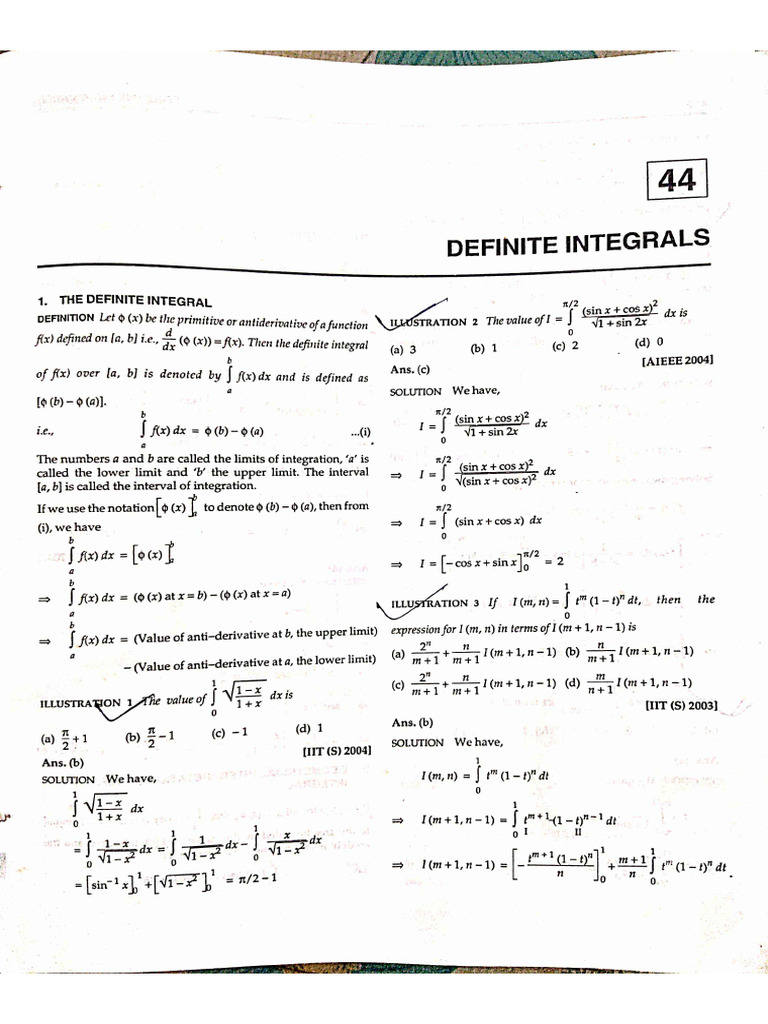 44
DEFINITE INTEGRALS
1. THE DEFINITE INTEGRAL
DEFINITION Let ϕ (x) be the primitive or antiderivative of a function
f(x) defined on [a, b] i.e., d/dx (ϕ (x)) = f(x). Then the definite integral
of f(x) over [a, b] is denoted by ∫_a^b f(x) dx and is defined as
[ϕ (b) – ϕ (a)].
i.e., ∫_a^b f(x) dx = ϕ (b) – ϕ (a) ...(i)
The numbers a and b are called the limits of integration, 'a' is
called the lower limit and 'b' the upper limit. The interval
[a, b] is called the interval of integration.
If we use the notation [ϕ (x)]_a^b to denote ϕ (b) – ϕ (a), then from
(i), we have
∫_a^b f(x) dx = [ϕ (x)]_a^b
⇒ ∫_a^b f(x) dx = (ϕ (x) at x = b) – (ϕ (x) at x = a)
⇒ ∫_a^b f(x) dx = (Value of anti–derivative at b, the upper limit)
– (Value of anti–derivative at a, the lower limit)
ILLUSTRATION 1 The value of ∫_0^1 √((1 – x)/(1 + x)) dx is
(a) π/2 + 1 (b) π/2 – 1 (c) – 1 (d) 1
[IIT (S) 2004]
Ans. (b)
SOLUTION We have,
∫_0^1 √((1 – x)/(1 + x)) dx
= ∫_0^1 (1 – x)/√(1 – x²) dx = ∫_0^1 1/√(1 – x²) dx – ∫_0^1 x/√(1 – x²) dx
= [sin⁻¹ x]_0^1 + [√(1 – x²)]_0^1 = π/2 – 1
ILLUSTRATION 2 The value of I = ∫_0^{π/2} (sin x + cos x)²/√(1 + sin 2x) dx is
(a) 3 (b) 1 (c) 2 (d) 0
[AIEEE 2004]
Ans. (c)
SOLUTION We have,
I = ∫_0^{π/2} (sin x + cos x)²/√(1 + sin 2x) dx
⇒ I = ∫_0^{π/2} (sin x + cos x)²/√((sin x + cos x)²) dx
⇒ I = ∫_0^{π/2} (sin x + cos x) dx
⇒ I = [– cos x + sin x]_0^{π/2} = 2
ILLUSTRATION 3 If I (m, n) = ∫_0^1 t^m (1 – t)^n dt, then the
expression for I (m, n) in terms of I (m + 1, n – 1) is
(a) 2^n/(m + 1) + n/(m + 1) I (m + 1, n – 1) (b) n/(m + 1) I (m + 1, n – 1)
(c) 2^n/(m + 1) + n/(m + 1) I (m + 1, n – 1) (d) m/(n + 1) I (m + 1, n – 1)
[IIT (S) 2003]
Ans. (b)
SOLUTION We have,
I (m, n) = ∫_0^1 t^m (1 – t)^n dt
⇒ I (m + 1, n – 1) = ∫_0^1 t^{m + 1} (1 – t)^{n – 1} dt
I II
⇒ I (m + 1, n – 1) = [– t^{m + 1} (1 – t)^n / n]_0^1 + (m + 1)/n ∫_0^1 t^m (1 – t)^n dt